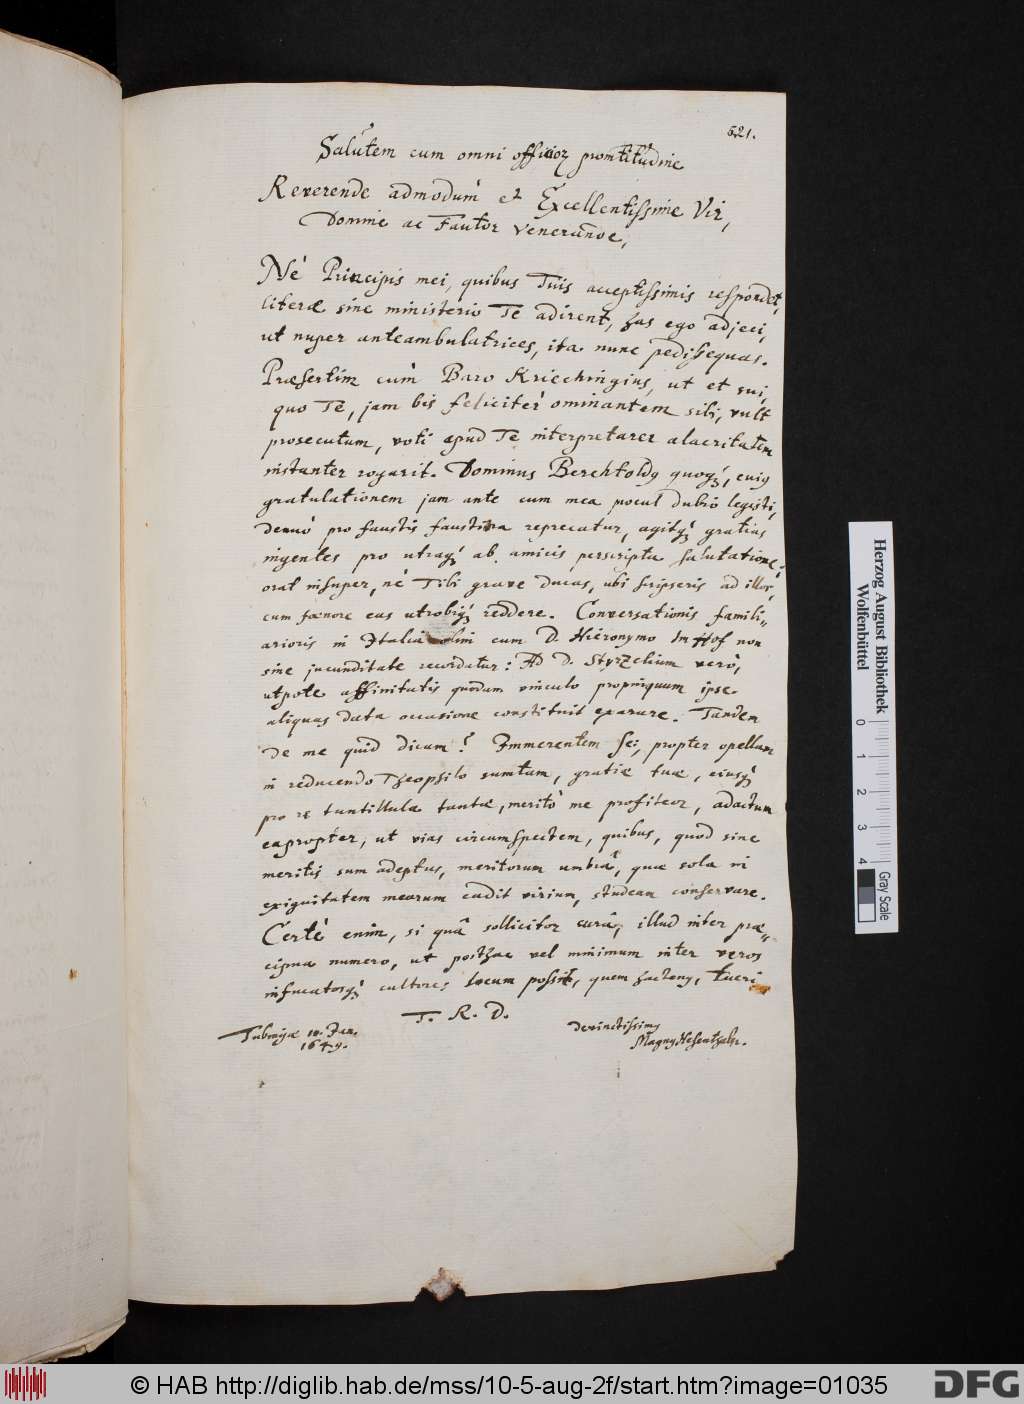 521.
Salutem cum omni officior promtitudine
Reverende admodum et Excellentissime Vir,
Domine ac Fautor venerande,
Nè Principis mei, quibus Tuis acceptissimis respondet,
literæ sine ministerio Te adirent, has ego adjeci,
ut nuper anteambulatrices, ita nunc pedissequas.
Præsertim cùm Baro Kriechingius, ut et sui,
quo Te, jam bis feliciter ominantem sibi, vult
prosecutum, voti apud Te interpretarer alacritatem
instanter rogarit. Dominus Berchtoldq quoq́, cuiq
gratulationem jam ante cum mea procul dubio legisti,
denuò pro faustis faustiora reprecatur, agitq́ gratias
ingentes pro utraq́ ab amicis perscripta salutatione,
orat insuper, nè Tibi grave ducas, ubi scripseris ad illos,
cum fœnore eas utrobiq́ reddere. Conversationis famili„
arioris in Italia olim cum D. Hieronymo Im Hof non
sine jucunditate recordatur: Ad D. Styrzelium verò,
utpote affinitatis quodam vinculo propinquum ipse
aliquas data occasione constituit exarare. Tandem
de me quid dicam? Immerentem sei, propter opellam
in reducendo Theophilo sumtam, gratiæ tuæ, eiusq́
pro re tantillula tantæ, meritò me profiteor, adactum
eapropter, ut vias circumspectem, quibus, quod sine
meritis sum adeptus, meritorum umbrâ, quæ sola in
exiguitatem mearum cadit virium, studeam conservare.
Certè enim, si quâ sollicitor curâ, illud inter præ„
cipua numero, ut posthac vel minimum inter veros
infucatosq́ cultores locum possit, quem hactenq, tueri
T. R. D.
Tubingæ 10. Jan.
1649.
Devinctissimq
Magnq Hesenthalr.
Herzog August Bibliothek
Wolfenbüttel
0 1 2 3 4
Gray Scale
© HAB http://diglib.hab.de/mss/10-5-aug-2f/start.htm?image=01035
DFG